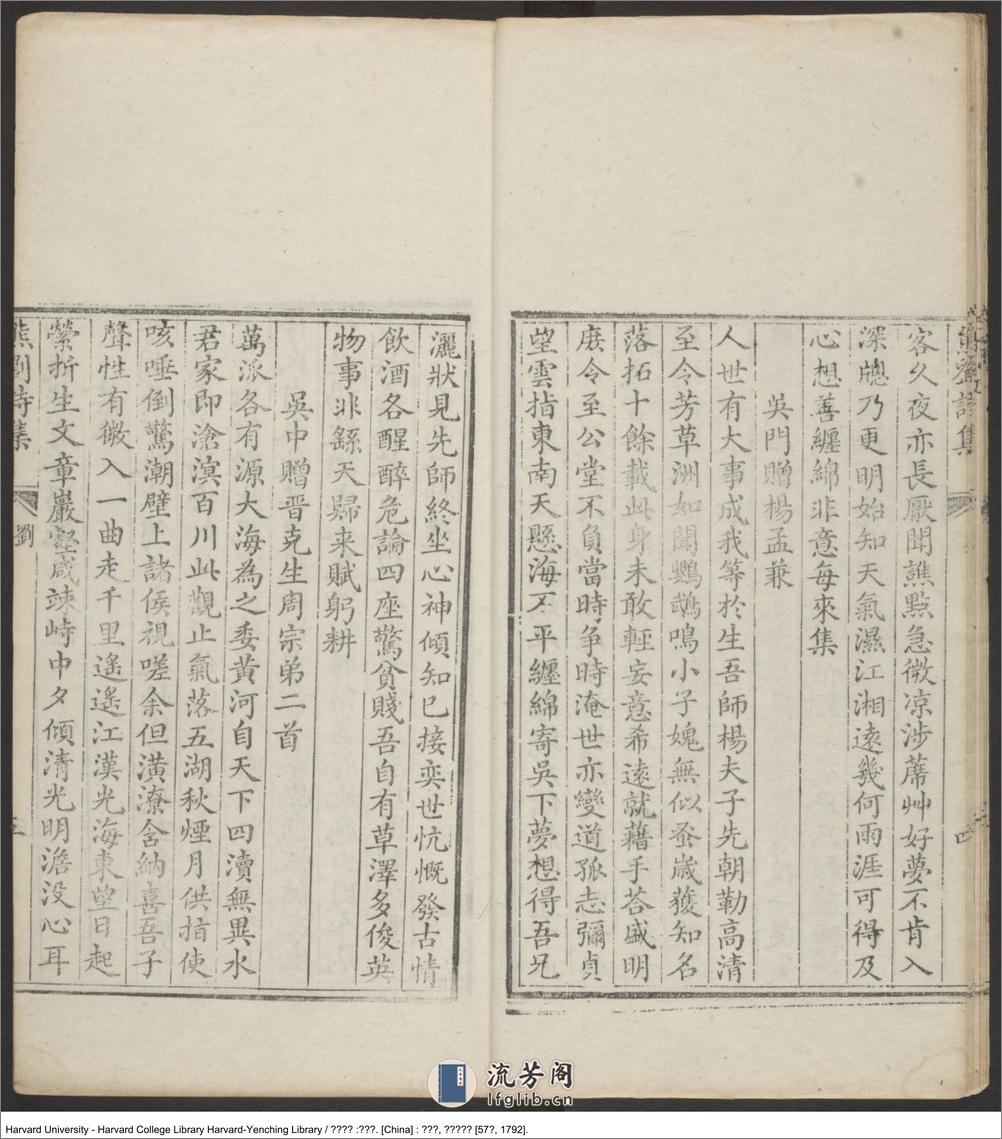 熊劉詩集
四
客久夜亦長厭聞譙點急微凉涉蓆艸好夢不肯入
深牕乃更明始知天氣濕江湘遠幾何雨涯可得及
心想善纏綿非意每來集
吳門贈楊孟兼
人世有大事成我等於生吾師楊夫子先朝勒高清
至今芳草洲如聞鷤鵡鳴小子媿無似蚤歲獲知名
落拓十餘載此身未敢輕妄意希遠就藉手荅盛明
庻令至公堂不負當時爭時淹世亦變道孤志彌貞
望雲指東南天懸海不平纏綿寄吳下夢想得吾兄
灑狀見先師終坐心神傾知已接奕世忼慨發古情
飲酒各醒醉危論四座驚貧賤吾自有草澤多俊英
物事非繇天歸来賦躬耕
吳中贈晋克生周宗弟二首
萬派各有源大海為之委黄河自天下四瀆無異水
君家即滄溟百川此觀止氣落五湖秋煙月供指使
咳唾倒驚潮壁上諸侯視嗟余但潢潦舍納喜吾子
聲性有微入一曲走千里遙遙江漢光海東望日起
縈折生文章巖壑咸竦峙中夕傾清光明澹没心耳
熊劉詩集
劉
五
流芳阁
lfglib.cn
Harvard University - Harvard College Library Harvard-Yenching Library / ???? :???. [China] : ???, ????? [57?, 1792].